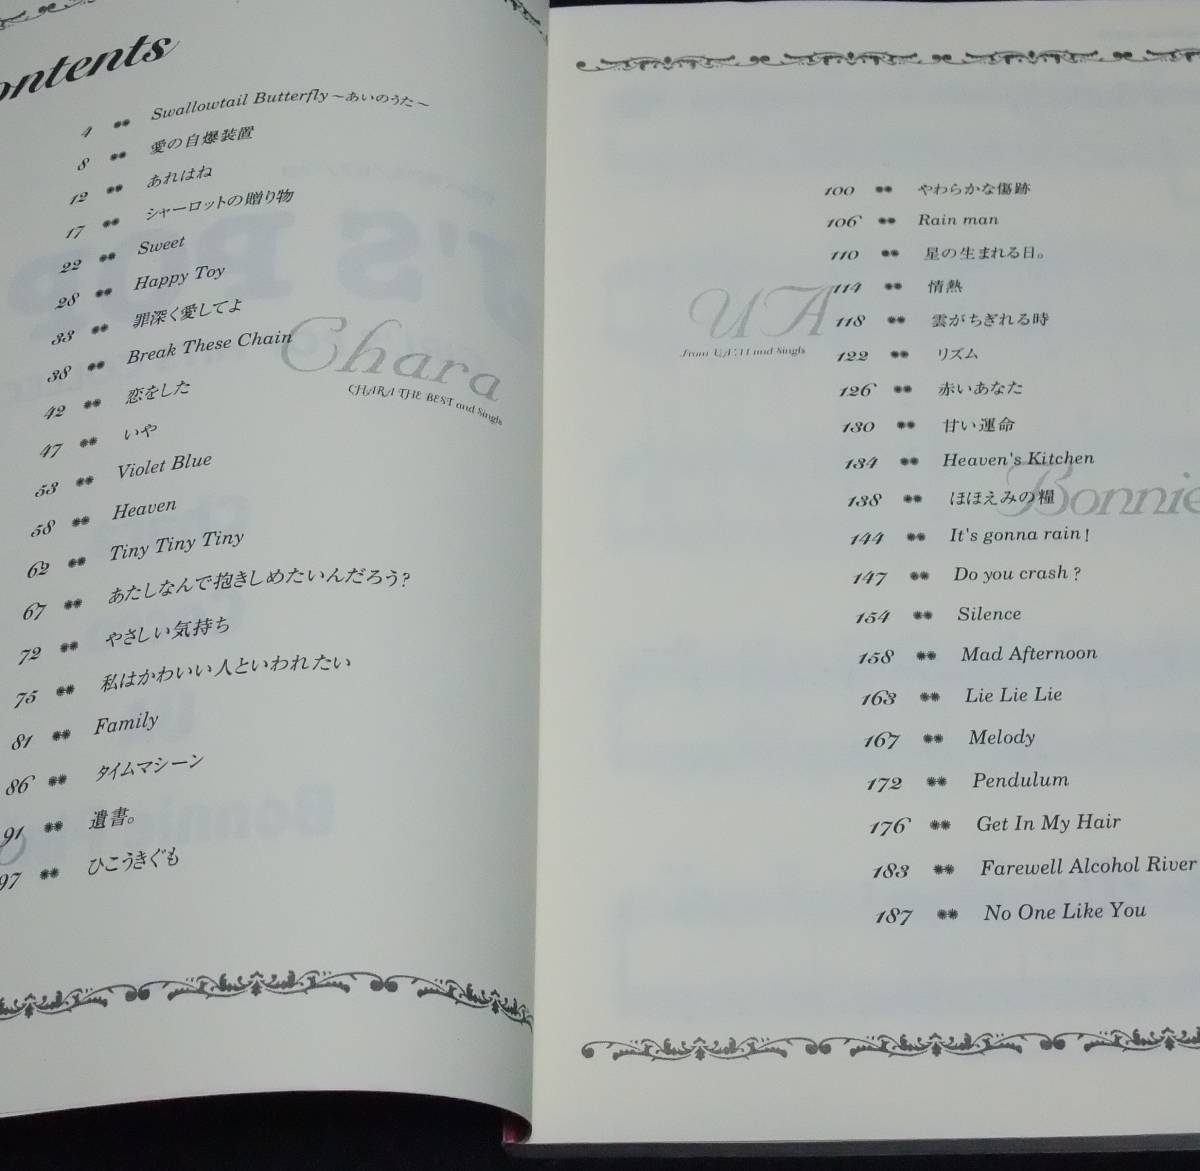 ontents
4 ** Swallowtail Butterfly～あいのうた～
8 ** 愛の自爆装置
12 ** あれはね
17 ** シャーロットの贈り物
22 ** Sweet
28 ** Happy Toy
33 ** 罪深く愛してよ
38 ** Break These Chain
42 ** 恋をした
47 ** いや
53 ** Violet Blue
58 ** Heaven
62 ** Tiny Tiny Tiny
67 ** あたしなんで抱きしめたいんだろう?
72 ** やさしい気持ち
75 ** 私はかわいい人といわれたい
81 ** Family
86 ** タイムマシーン
91 ** 遺書。
97 ** ひこうきぐも
Chara
CHARA THE BEST and Singls
UA
from UA '11 and Singls
100 ** やわらかな傷跡
106 ** Rain man
110 ** 星の生まれる日。
114 ** 情熱
118 ** 雲がちぎれる時
122 ** リズム
126 ** 赤いあなた
130 ** 甘い運命
134 ** Heaven's Kitchen
138 ** ほほえみの糧
144 ** It's gonna rain!
147 ** Do you crash?
154 ** Silence
158 ** Mad Afternoon
163 ** Lie Lie Lie
167 ** Melody
172 ** Pendulum
176 ** Get In My Hair
183 ** Farewell Alcohol River
187 ** No One Like You
Bonnie